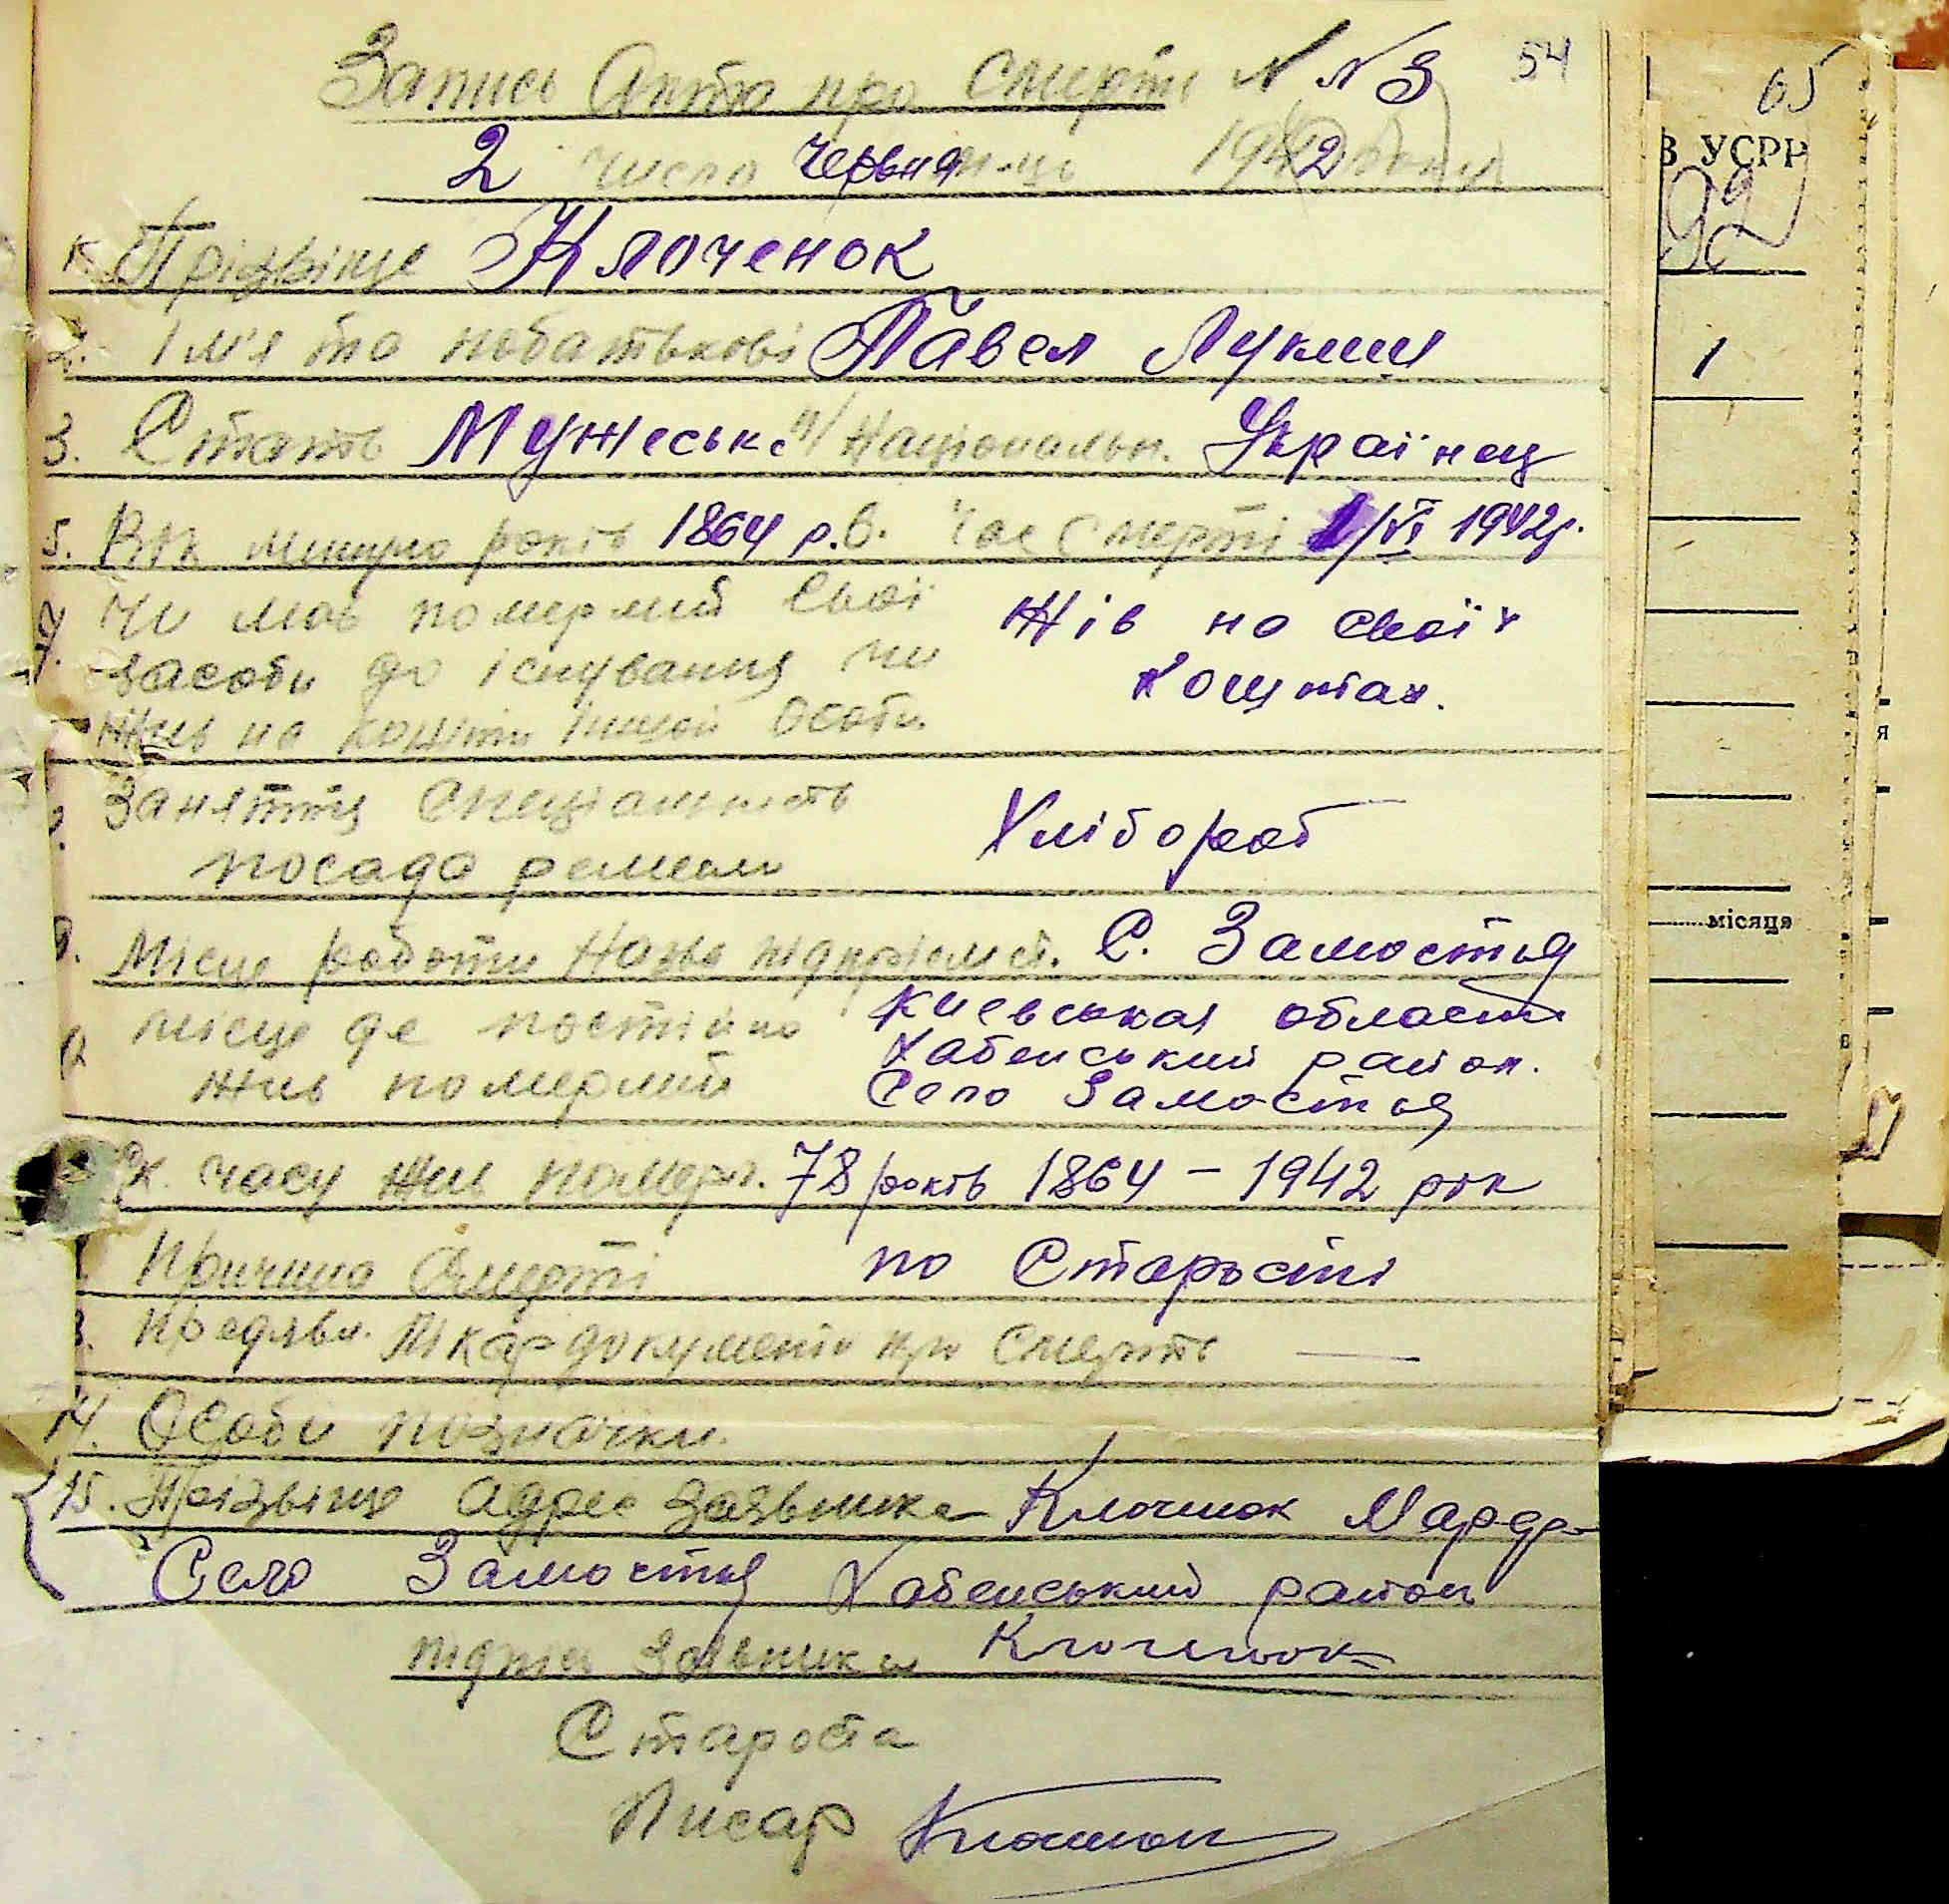 Запись Акта про Смерть N N 3 54
2 число червня м-ць 1942 року
1. Прізвіще Клоченок
2. Імʼя та побатькові Павел Лукич
3. Стать Мужеська 4/ Національн. Українец
5. Вік минуло років 1864 р. 6. Час Смерті 1/VI 1942р.
7. Чи мав померлий Свої
засоби до існування чи
жив на кошти іншой особи.
Жів на своїх
Коштах.
Заняття Спеціальність
посада ремесло
Хлібороб
9. Місце роботи Назва підприємст. С. Замостья
Місце де постійно
жив померлий
Киевськая область
Хабенський район.
Село Замостья
Ск. часу жив помер. 78 років 1864 - 1942 рік
Причина Смерті по Старости
3. Предявл. Лікар документи про Смерть —
14. Особи позначки.
15. Прізвіще адрес заявника Клоченок
Село Замостья Хабенський район
підпис Заявника Клоченок
Староста
Писар
65
В УСРР
92
1
місяця
я
в